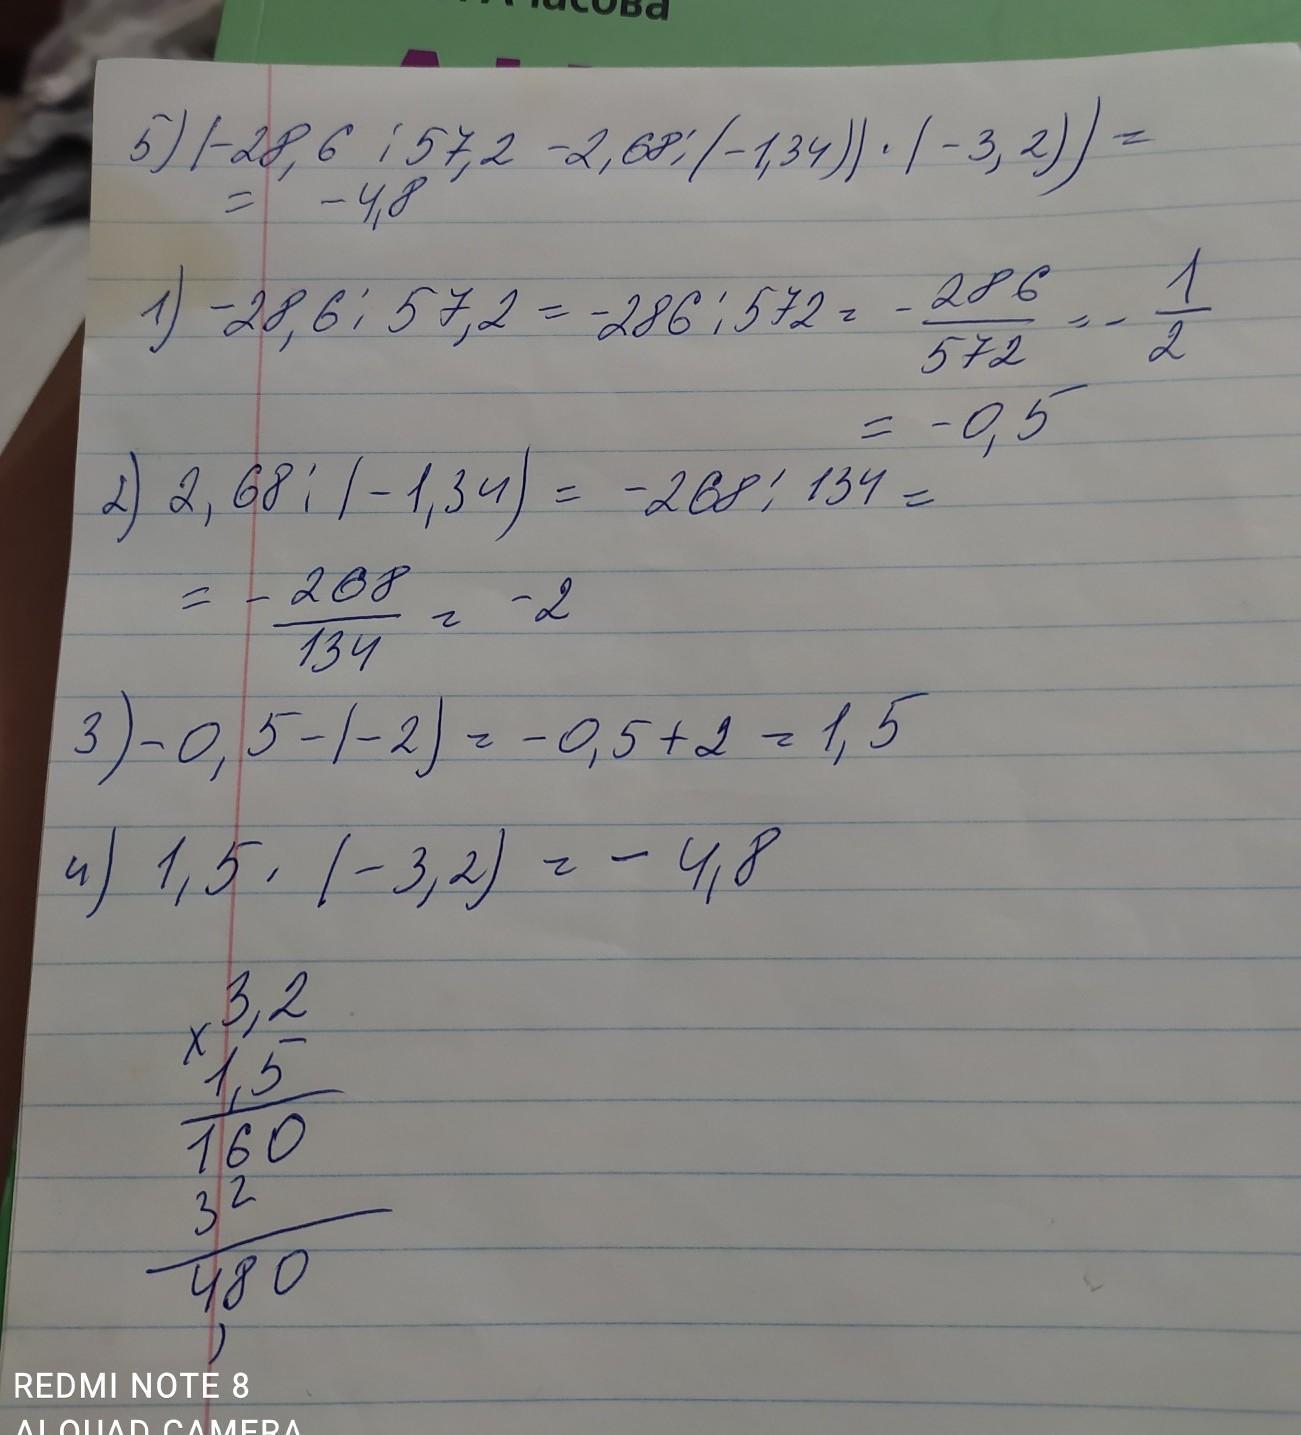 часова
5) (-28,6 : 57,2 -2,68 : (-1,34)) · (-3,2)) =
= -4,8
1) -28,6 : 57,2 = -286 : 572 = - 286/572 = - 1/2
= -0,5
2) 2,68 : (-1,34) = -268 : 134 =
= - 268/134 = -2
3) -0,5-(-2) = -0,5+2 = 1,5
4) 1,5 · (-3,2) = - 4,8
3,2
x
1,5
160
32
480
,
REDMI NOTE 8
AI QUAD CAMERA